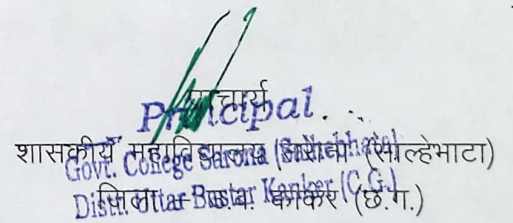 प्राचार्य
Principal
शासकीय महाविद्यालय सरोना (साल्हेभाटा)
Govt. College Sarona (Salhebhata)
जिला - उ.ब. कांकेर (छ.ग.)
Distt. Uttar Bastar Kanker (C.G.)